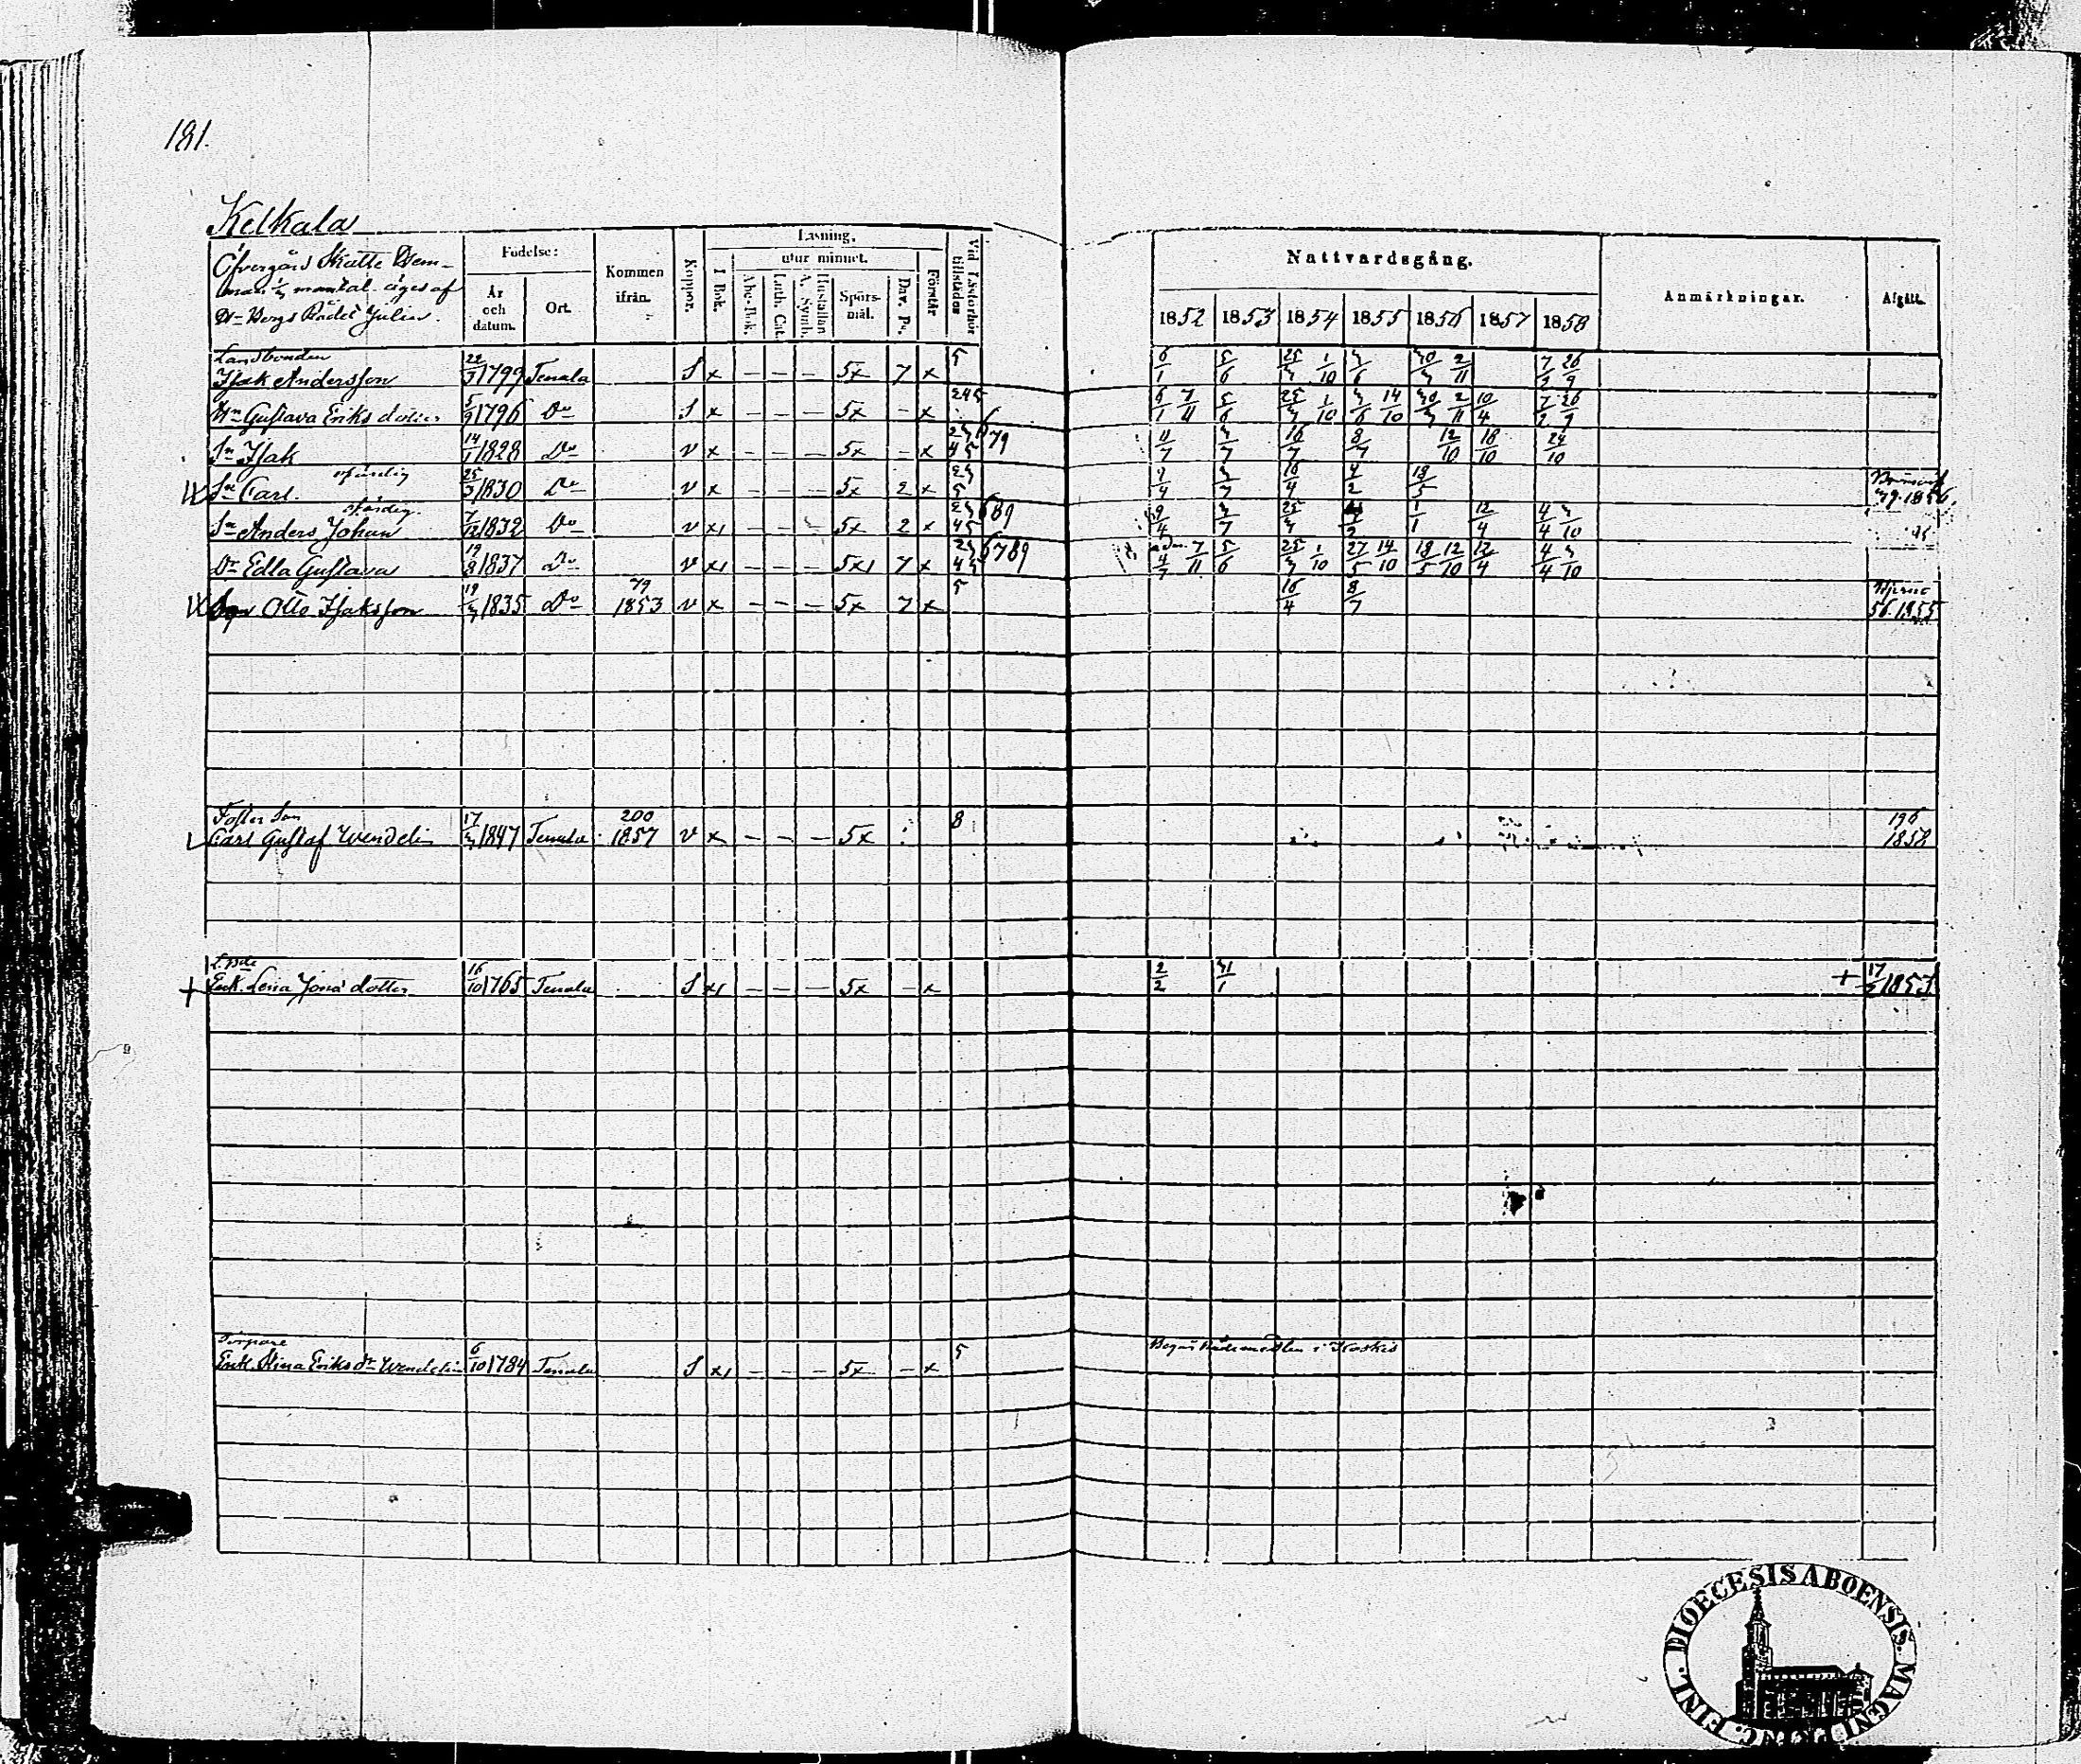 181.
Kelkala
Öfvergård Skatte Hem-
man mantal äges af
Hr Bergs Rådet Julin.
Födelse:
År och datum.
Ort.
Kommen ifrån.
Koppor.
Läsning,
I Bok.
utur minnet.
Abc-Bok.
Luth. Cat.
Hustaflan A. Symb.
Spörs-mål.
Dav. Ps.
Förstår
Vid Läsförhör tillstädes
Nattvardsgång.
1852 1853 1854 1855 1856 1857 1858
Anmärkningar.
Afgått.
Landbonden
Isak Andersson 22/3 1799 Tenala S x - - - 5x 7 x 5 6/1 5/6 25/3 1/10 3/6 30/3 2/11 7/2 26/9
Hu Gustava Eriksdotter 5/9 1796 Do S x - - - 5x - x 245 6/1 7/11 5/6 25/3 1/10 3/6 14/10 30/3 2/11 10/4 7/2 26/9
Sn Isak 14/1 1828 Do v x - - - 5x - x 23 45 679 11/7 3/7 16/7 8/7 12/10 18/10 24/10
Sn Carl. ofärdig 25/3 1830 Do v x - - - 5x 2 x 23 5 4/4 3/7 16/4 4/2 18/5 79. 1856.
Sn Anders Johan ofärdig. 7/12 1832 Do v x1 - - - 5x 2 x 23 45 689 9/4 3/7 25/3 4/2 1/1 12/4 4/4 3/10
Dr Edla Gustava 19/8 1837 Do v x1 - - - 5x1 7 x 23 45 6789 adm. 4/7 7/11 5/6 25/3 1/10 27/5 14/10 18/5 12/10 12/4 4/4 3/10
Otto Isaksson 19/3 1835 Do 79 1853 v x - - - 5x 7 x 5 16/4 8/7 56. 1855
Foster Son
Carl Gustaf Wendelin 17/3 1847 Tenala 200 1857 v x - - - 5x 8 196 1858
+ Enk. Lena Jonsdotter 16/10 1765 Tenala S x1 - - - 5x - x 2/2 31/1 + 17/2 1853
Torpare
Enk. Stina Eriksdr Wendelin 6/10 1784 Tenala S x1 - - - 5x - x 5 i Koskis
FINL. DIOECESIS ABOENSIS. MAGNI DUC.